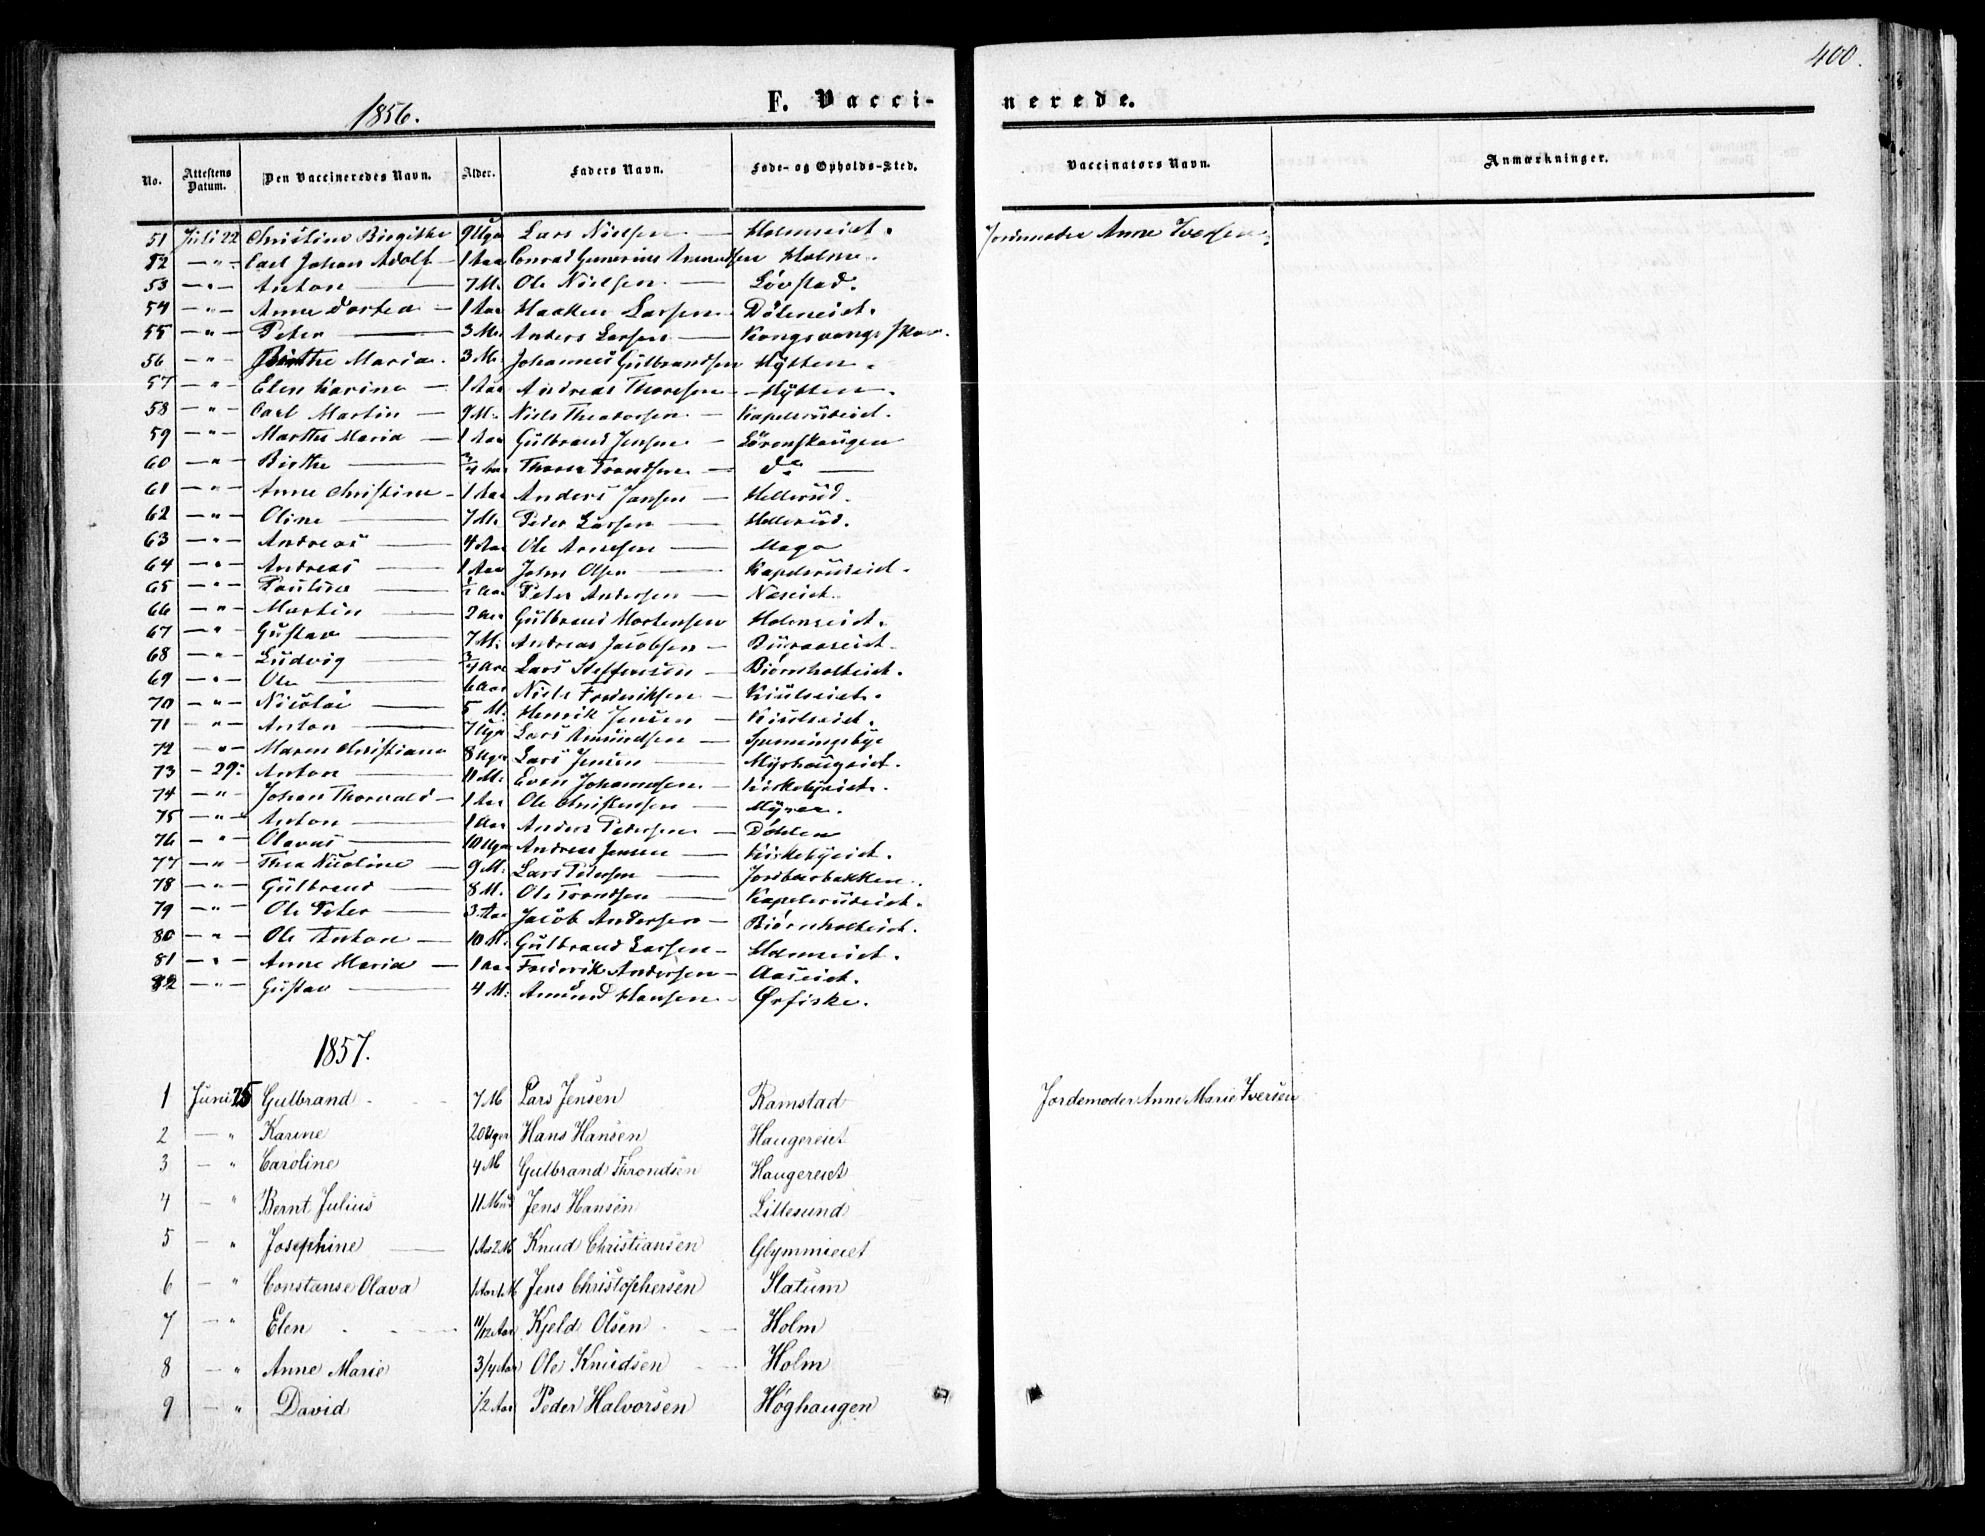 400.
1856.
F. Vacci-
nerede.
No. Attestens Datum. Den Vaccineredes Navn. Alder. Faders Navn. Føde- og Opholds-Sted. Vaccinators Navn. Anmærkninger.
51 Juli 22 Christine Birgitte 9 Uger Lars Nielsen — Holmseiet. Jordmoder Anne Iversen
52 — " - Carl Johan Adolf — 1 Aar Conrad Gunerius Amundsen Holm.
53 — " — Anton — 7 M. Ole Nielsen — Løvstad.
54 — " — Anne Dortea — 1 Aar Haaken Larsen Døleneiet.
55 — " — Peter — 3 M. Anders Larsen — Kongsvangs skov.
56 — " Birthe Maria. 3 M. Johannes Gulbrandsen Hytten.
57 — " — Elen Karine — 1 Aar Andreas Thoresen — Hytten.
58 — " — Carl Martin — 9 M. Niels Theodorsen — Kapelsrudeiet.
59 — " — Marthe Maria — 1 Aar Gulbrand Jensen — Lørenskaugen
60 — " — Birthe — 3/4 Aar Thorer Trondsen — do —
61 — " — Anne Christine — 1 Aar Anders Jansen — Hellerud.
62 — " — Oline — 7 M. Peder Larsen — Hellerud.
63 — " — Andreas — 4 Aar Ole Arnesen — Maga
64 — " — Andreas — 1 Aar John Olsen — Kapelsrudeiet.
65 — " — Pauline — 1/2 Aar Peter Andersen — Næseiet.
66 — " — Martin — 2 Aar Gulbrand Mortensen Holmseiet.
67 — " Gustav — 7 M. Andreas Jacobsen — Buraaseiet.
68 — " — Ludvig — 3/4 Aar Lars Steffensen — Biørnholteiet.
69 — " — Ole — 6 Aar Niels Frederiksen — Kiulseiet.
70 — " — Nicolai — 5 M. Henrik Jensen — Kiulseiet.
71 — " — Anton — 7 Uger Lars Amundsen —
72 — " — Maren Christiane 8 Uger Lars Jensen — Myrhaugeiet.
73 — 29. Anton — 11 M. Even Johannesen — Kirkebyeiet.
74 — " — Johan Thorvald — 1 Aar Ole Christensen — Myrer.
75 — " — Anton — 1 Aar Anders Pedersen — Døhlen
76 — " Olavus — 10 Uger Andreas Jensen — Kirkebyeiet.
77 — " Thea Nicoline — 9 M. Lars Petersen — Jordbærbakken.
78 — " — Gulbrand — 8 M. Ole Trondsen — Kapelsrudeiet.
79 — " — Ole Peter — 3 Aar Jacob Andersen — Biørnholteiet.
80 — " — Ole Anton — 10 M. Gulbrand Larsen — Holmseiet.
81 — " Anne Maria — 1 Aar Frederik Andersen — Aaseiet.
82 — " — Gustav — 4 M: Amund Hansen — Ørfiske.
1857.
1 Juni 25 Gulbrand 7 M Lars Jensen Ramstad Jordemoder Anne Marie Iversen
2 — " Karine 20 Uger Hans Hansen Haugereiet
3 — " Caroline 4 M Gulbrand Throndsen Haugereiet
4 — " Bernt Julius 11 Mnd Jens Hansen Lillesund
5 — " Josephine — 1 Aar 2 M Knud Christiansen Glymmieiet
6 — " Constanse Olava 1 Aar 1 M Jens Christophersen Slatum
7 — " Elen 11/12 Aar Kjeld Olsen Holm
8 — " Anne Marie 3/4 Aar Ole Knudsen Holm
9 — " David 1/2 Aar Peder Halvorsen Høghaugen